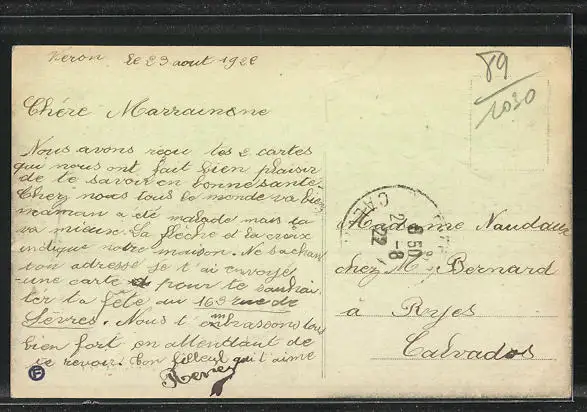 Véron le 23 août 1922
Chère Marrainene
Nous avons reçu tes 2 cartes
qui nous ont fait bien plaisir
de te savoir en bonne santé.
Chez nous tous le monde va bien
maman a été malade mais ta
va mieux. La flèche et la croix
indique notre maison. Ne sachan
ton adresse je t'ai envoyé
une carte pour te souhai
ter ta fête au 169 rue de
Sèvres. Nous t'embrassons tous
bien fort en attendant de
te revoir. Ton filleul qui t'aime
René
89
1030
CAL
8 50
2 -8
22
Madame Naudau
chez Mr Bernard
à Ryes
Calvados